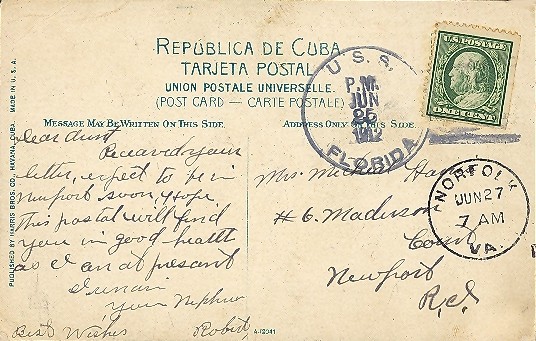 REPÚBLICA DE CUBA
TARJETA POSTAL
UNION POSTALE UNIVERSELLE.
(POST CARD — CARTE POSTALE)
MESSAGE MAY BE WRITTEN ON THIS SIDE.
ADDRESS ONLY ON THIS SIDE
U.S. POSTAGE
ONE CENT
U. S. S.
P.M.
JUN
25
1912
FLORIDA
NORFOLK
JUN 27
7 AM
VA.
Dear Aunt
Received your
letter, expect to be in
Newport soon, Hope
this postal will find
you in good health
as I am at presant
I remain
your Nephew
Best Wishes Robert
Mrs.
# 6. Madison
Court
Newport
R.I
PUBLISHED BY HARRIS BROS. CO., HAVANA, CUBA. MADE IN U.S.A.
A-12041